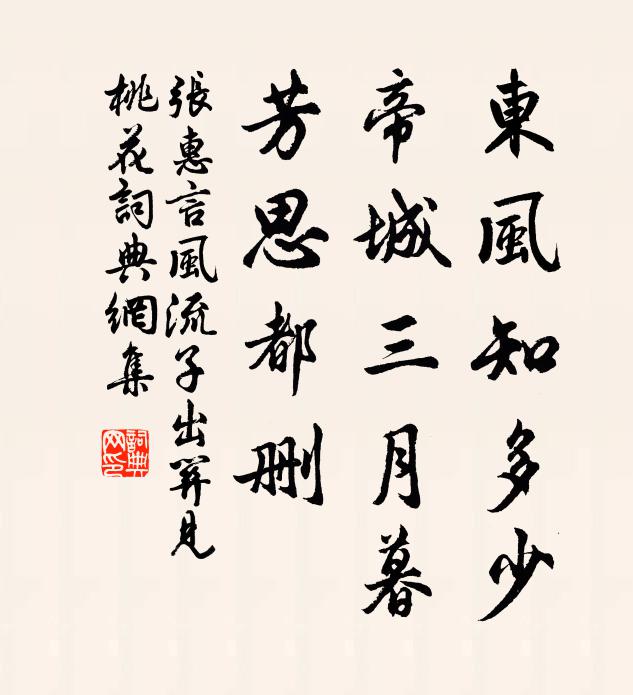 東風知多少
帝城三月暮
芳思都删
張惠言風流子出關見
桃花詞典網集
詞典
网印